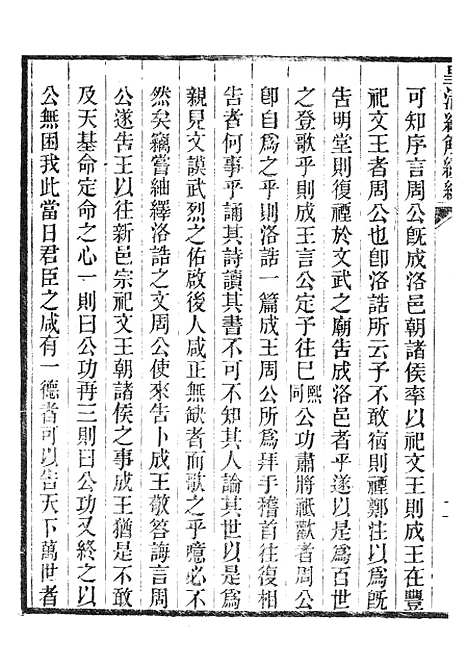 皇清經解續編
可知序言周公旣成洛邑朝諸侯率以祀文王則成王在豐
祀文王者周公也卽洛誥所云予不敢宿則禋鄭注以爲旣
告明堂則復禋於文武之廟告成洛邑者乎遂以是爲百世
之登歌乎則成王言公定予往巳熙同公功肅將祗歡者周公
卽自爲之乎則洛誥一篇成王周公所爲拜手稽首往復相
告者何事乎誦其詩讀其書不可不知其人論其世以是爲
親見文謨武烈之佑啟後人咸正無缺者而歌之乎噫必不
然矣竊嘗紬繹洛誥之文周公使來告卜成王敬答誨言周
公遂告王以往新邑宗祀文王朝諸侯之事成王猶是不敢
及天基命定命之心一則曰公功再三則曰公功又終之以
公無困我此當日君臣之咸有一德者可以告天下萬世者